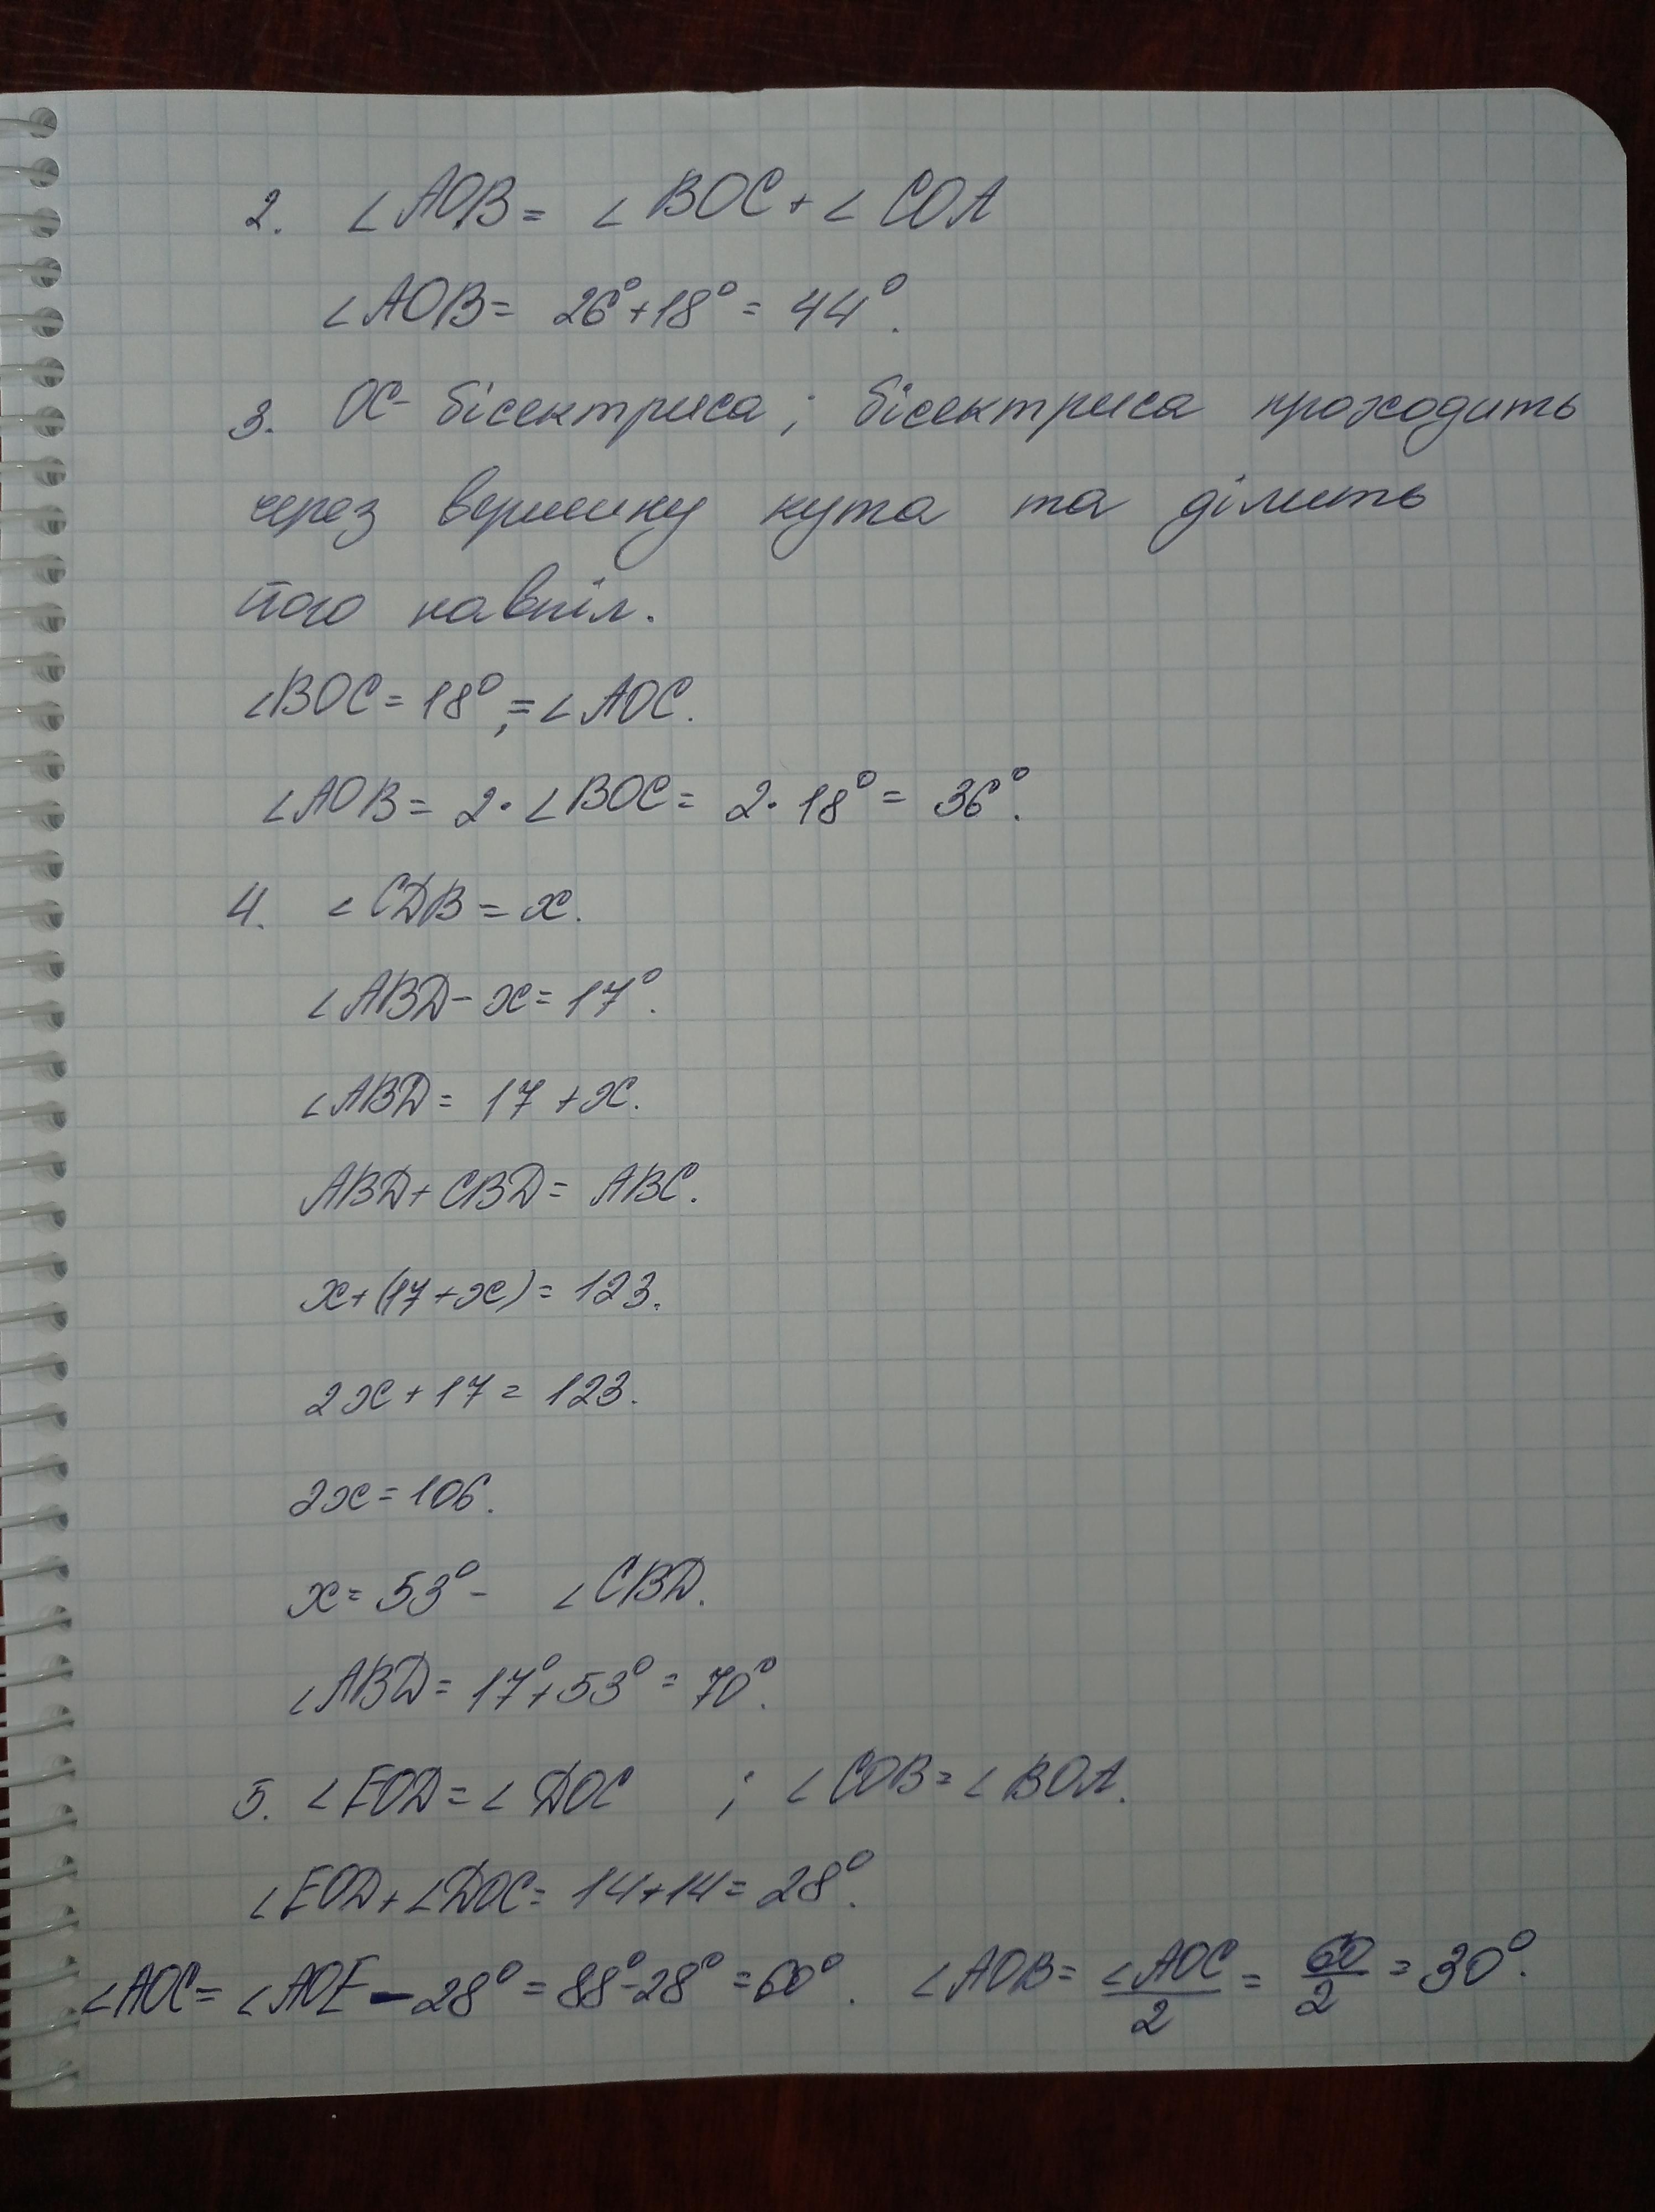 2. ∠AOB = ∠BOC + ∠COA
∠AOB = 26° + 18° = 44°.
3. OC - бісектриса; бісектриса проходить
через вершину кута та ділить
його навпіл.
∠BOC = 18°, = ∠AOC.
∠AOB = 2 · ∠BOC = 2 · 18° = 36°.
4. ∠CDB = x.
∠ABD - x = 17°.
∠ABD = 17 + x.
ABD + CBD = ABC.
x + (17 + x) = 123.
2x + 17 = 123.
2x = 106.
x = 53° - ∠CBD.
∠ABD = 17° + 53° = 70°.
5. ∠EOD = ∠DOC ; ∠COB = ∠BOA.
∠EOD + ∠DOC = 14 + 14 = 28°.
∠AOC = ∠AOE - 28° = 88° - 28° = 60°. ∠AOB = ∠AOC/2 = 60/2 = 30°.